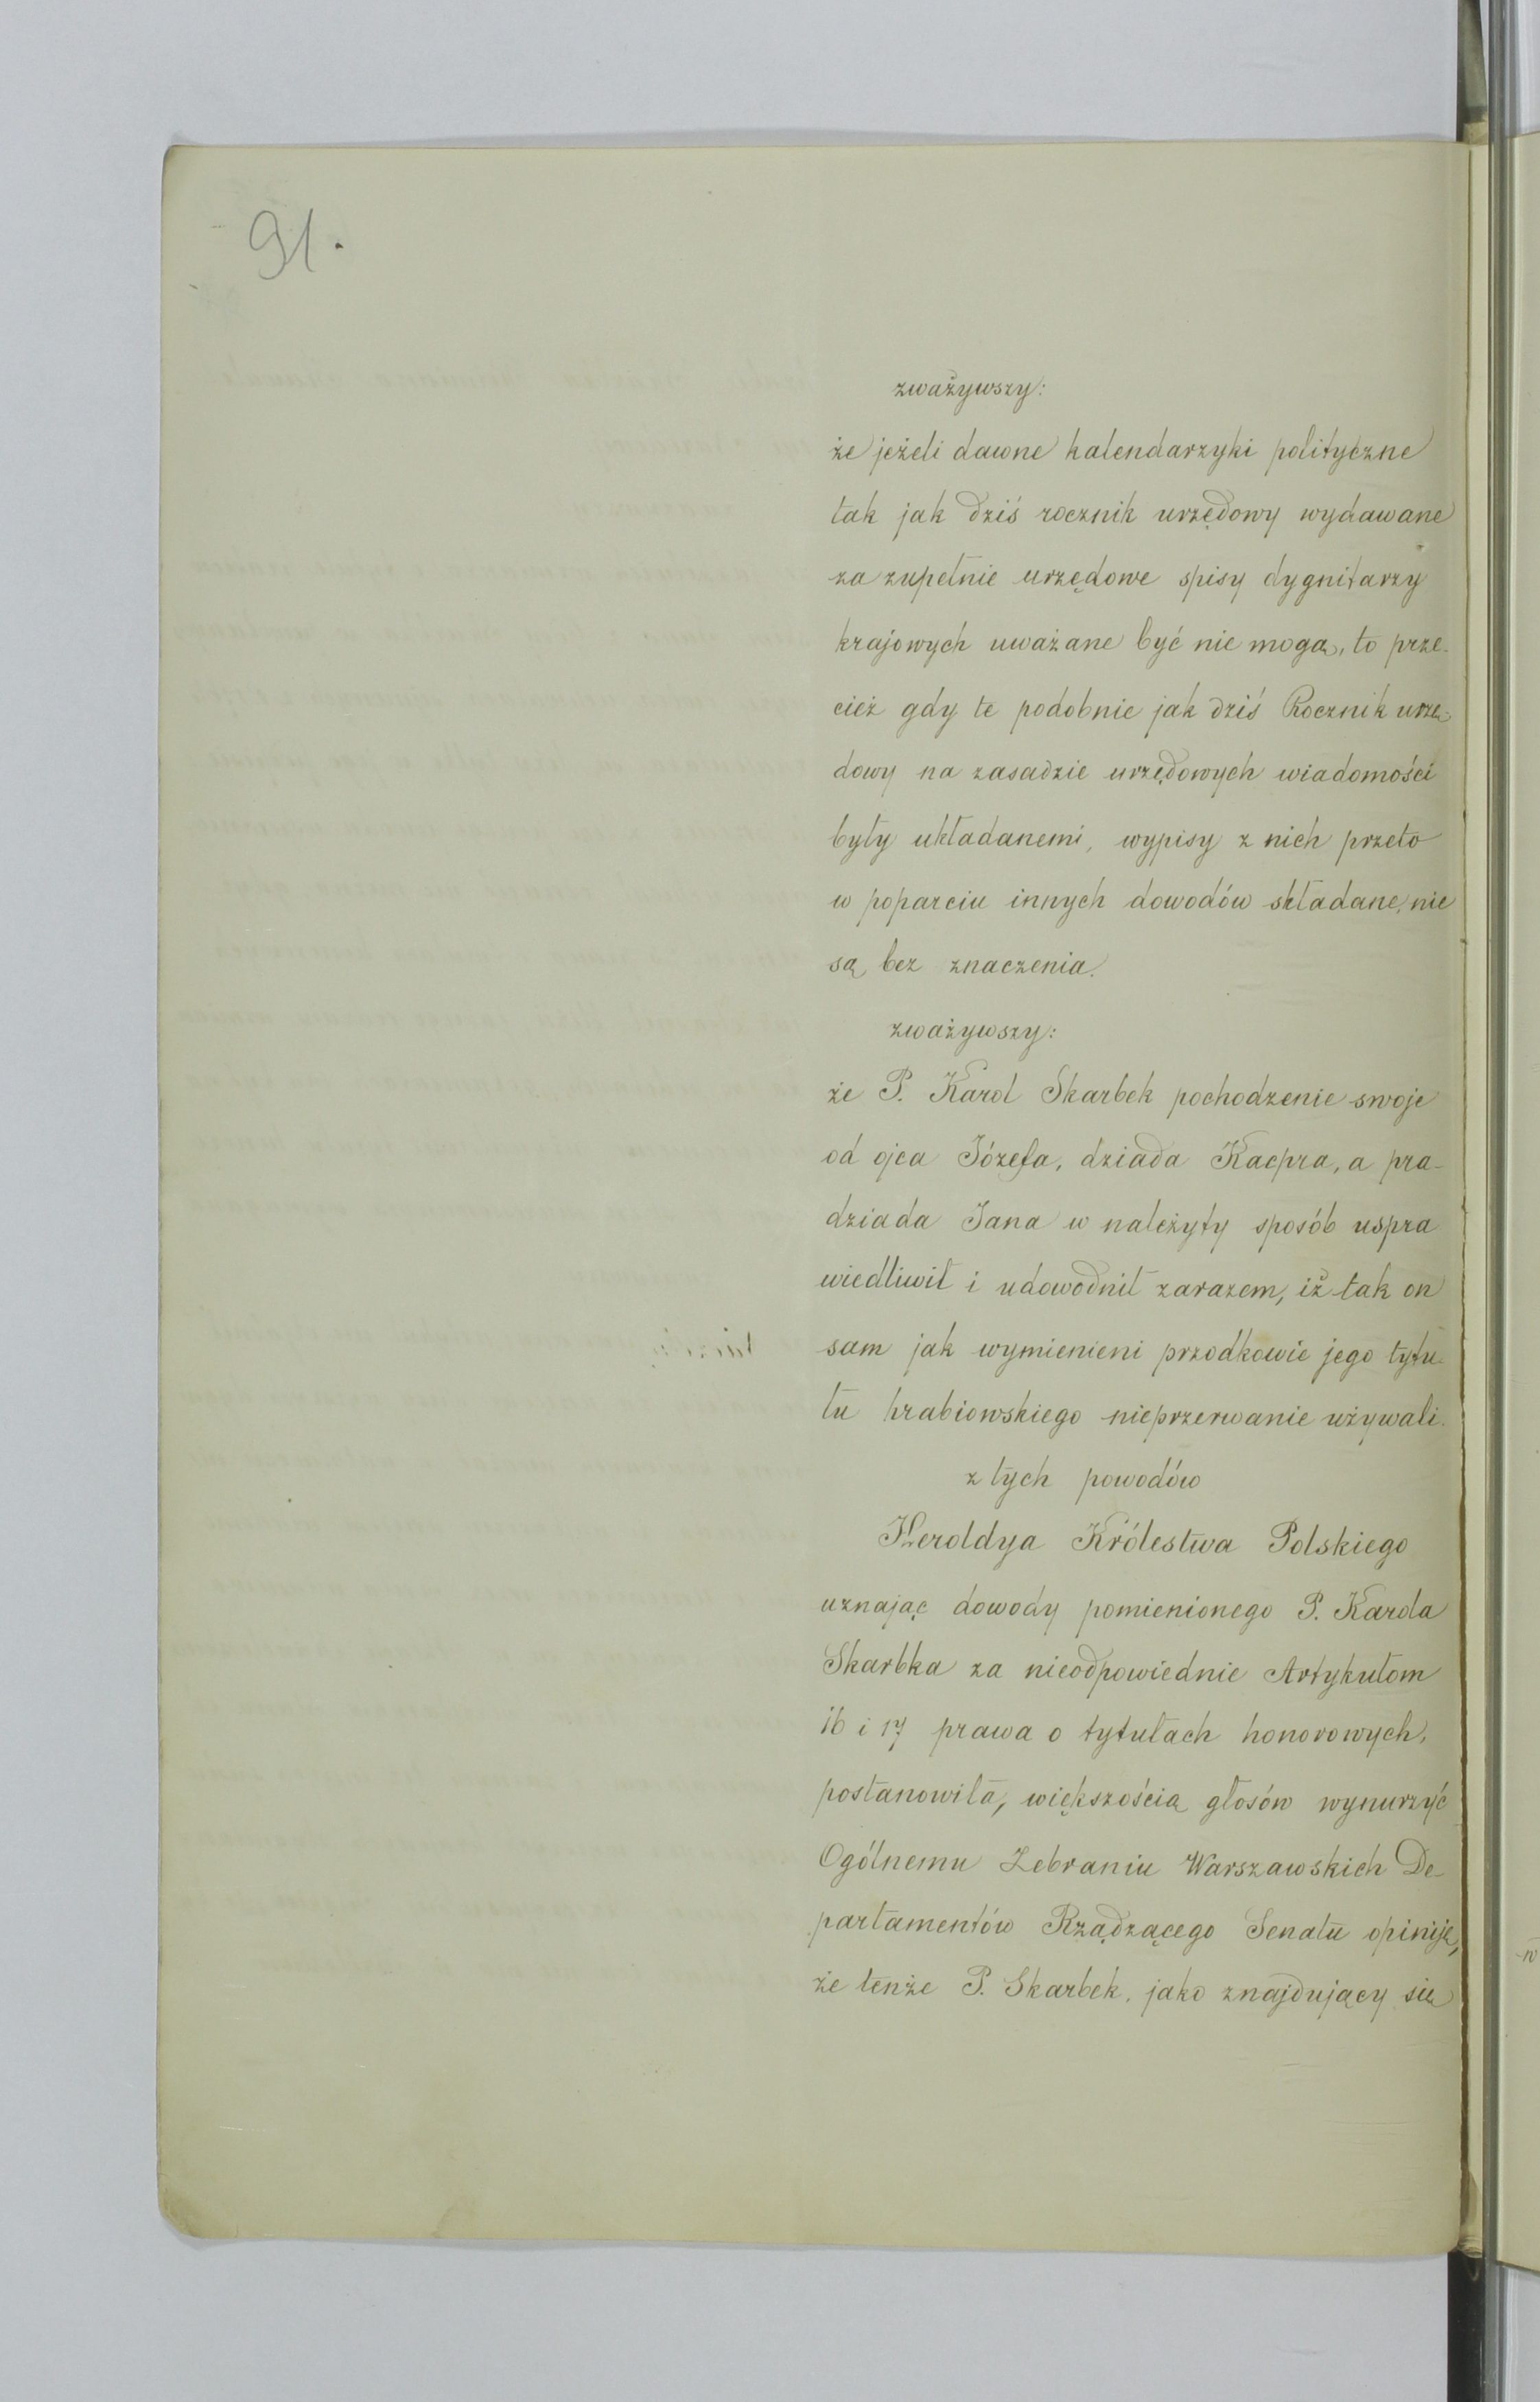 91.
zważywszy:
że jeżeli dawne kalendarzyki polityczne
tak jak dziś rocznik urzędowy wydawane
za zupełnie urzędowe spisy dygnitarzy
krajowych uważane być nie mogą, to prze-
cież gdy te podobnie jak dziś Rocznik urzę-
dowy na zasadzie urzędowych wiadomości
były układanemi, wypisy z nich przeto
w poparciu innych dowodów składane, nie
są bez znaczenia.
zważywszy:
że P. Karol Skarbek pochodzenie swoje
od ojca Józefa, dziada Kacpra, a pra-
dziada Jana w należyty sposób uspra
wiedliwił i udowodnił zarazem, iż tak on
sam jak wymienieni przodkowie jego tytu-
łu hrabiowskiego nieprzerwanie używali.
z tych powodów
Heroldya Królestwa Polskiego
uznając dowody pomienionego P. Karola
Skarbka za nieodpowiednie Artykułom
16 i 17 prawa o tytułach honorowych,
postanowiła, większością głosów wynurzyć
Ogólnemu Zebraniu Warszawskich De-
partamentów Rządzącego Senatu opiniję,
że tenże P. Skarbek, jako znajdujący się